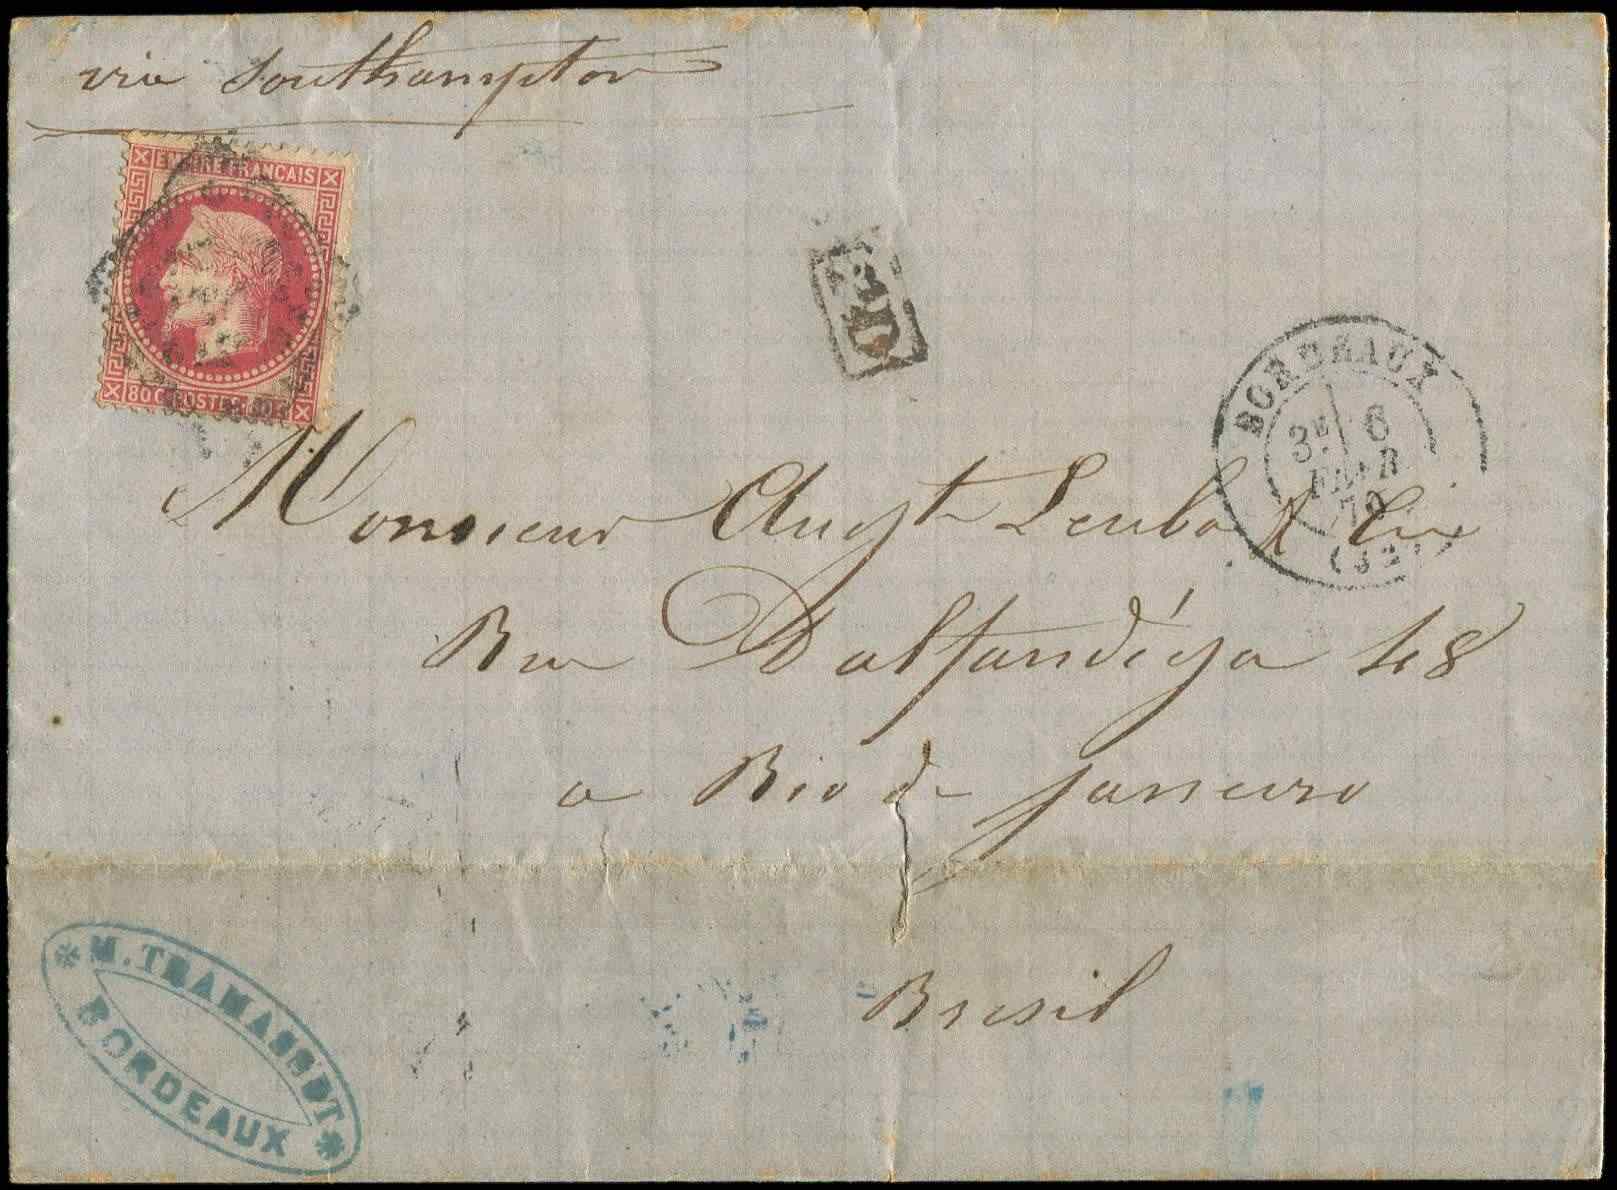 via Southampton
EMPIRE FRANCAIS
80 C POSTES 80 C
PD
BORDEAUX
3E 6
FEVR
70
Monsieur Augt Leuba & Cie
Rue D'alfandéga 48
a Rio de Janeiro
Bresil
M. TRAMASSET
BORDEAUX